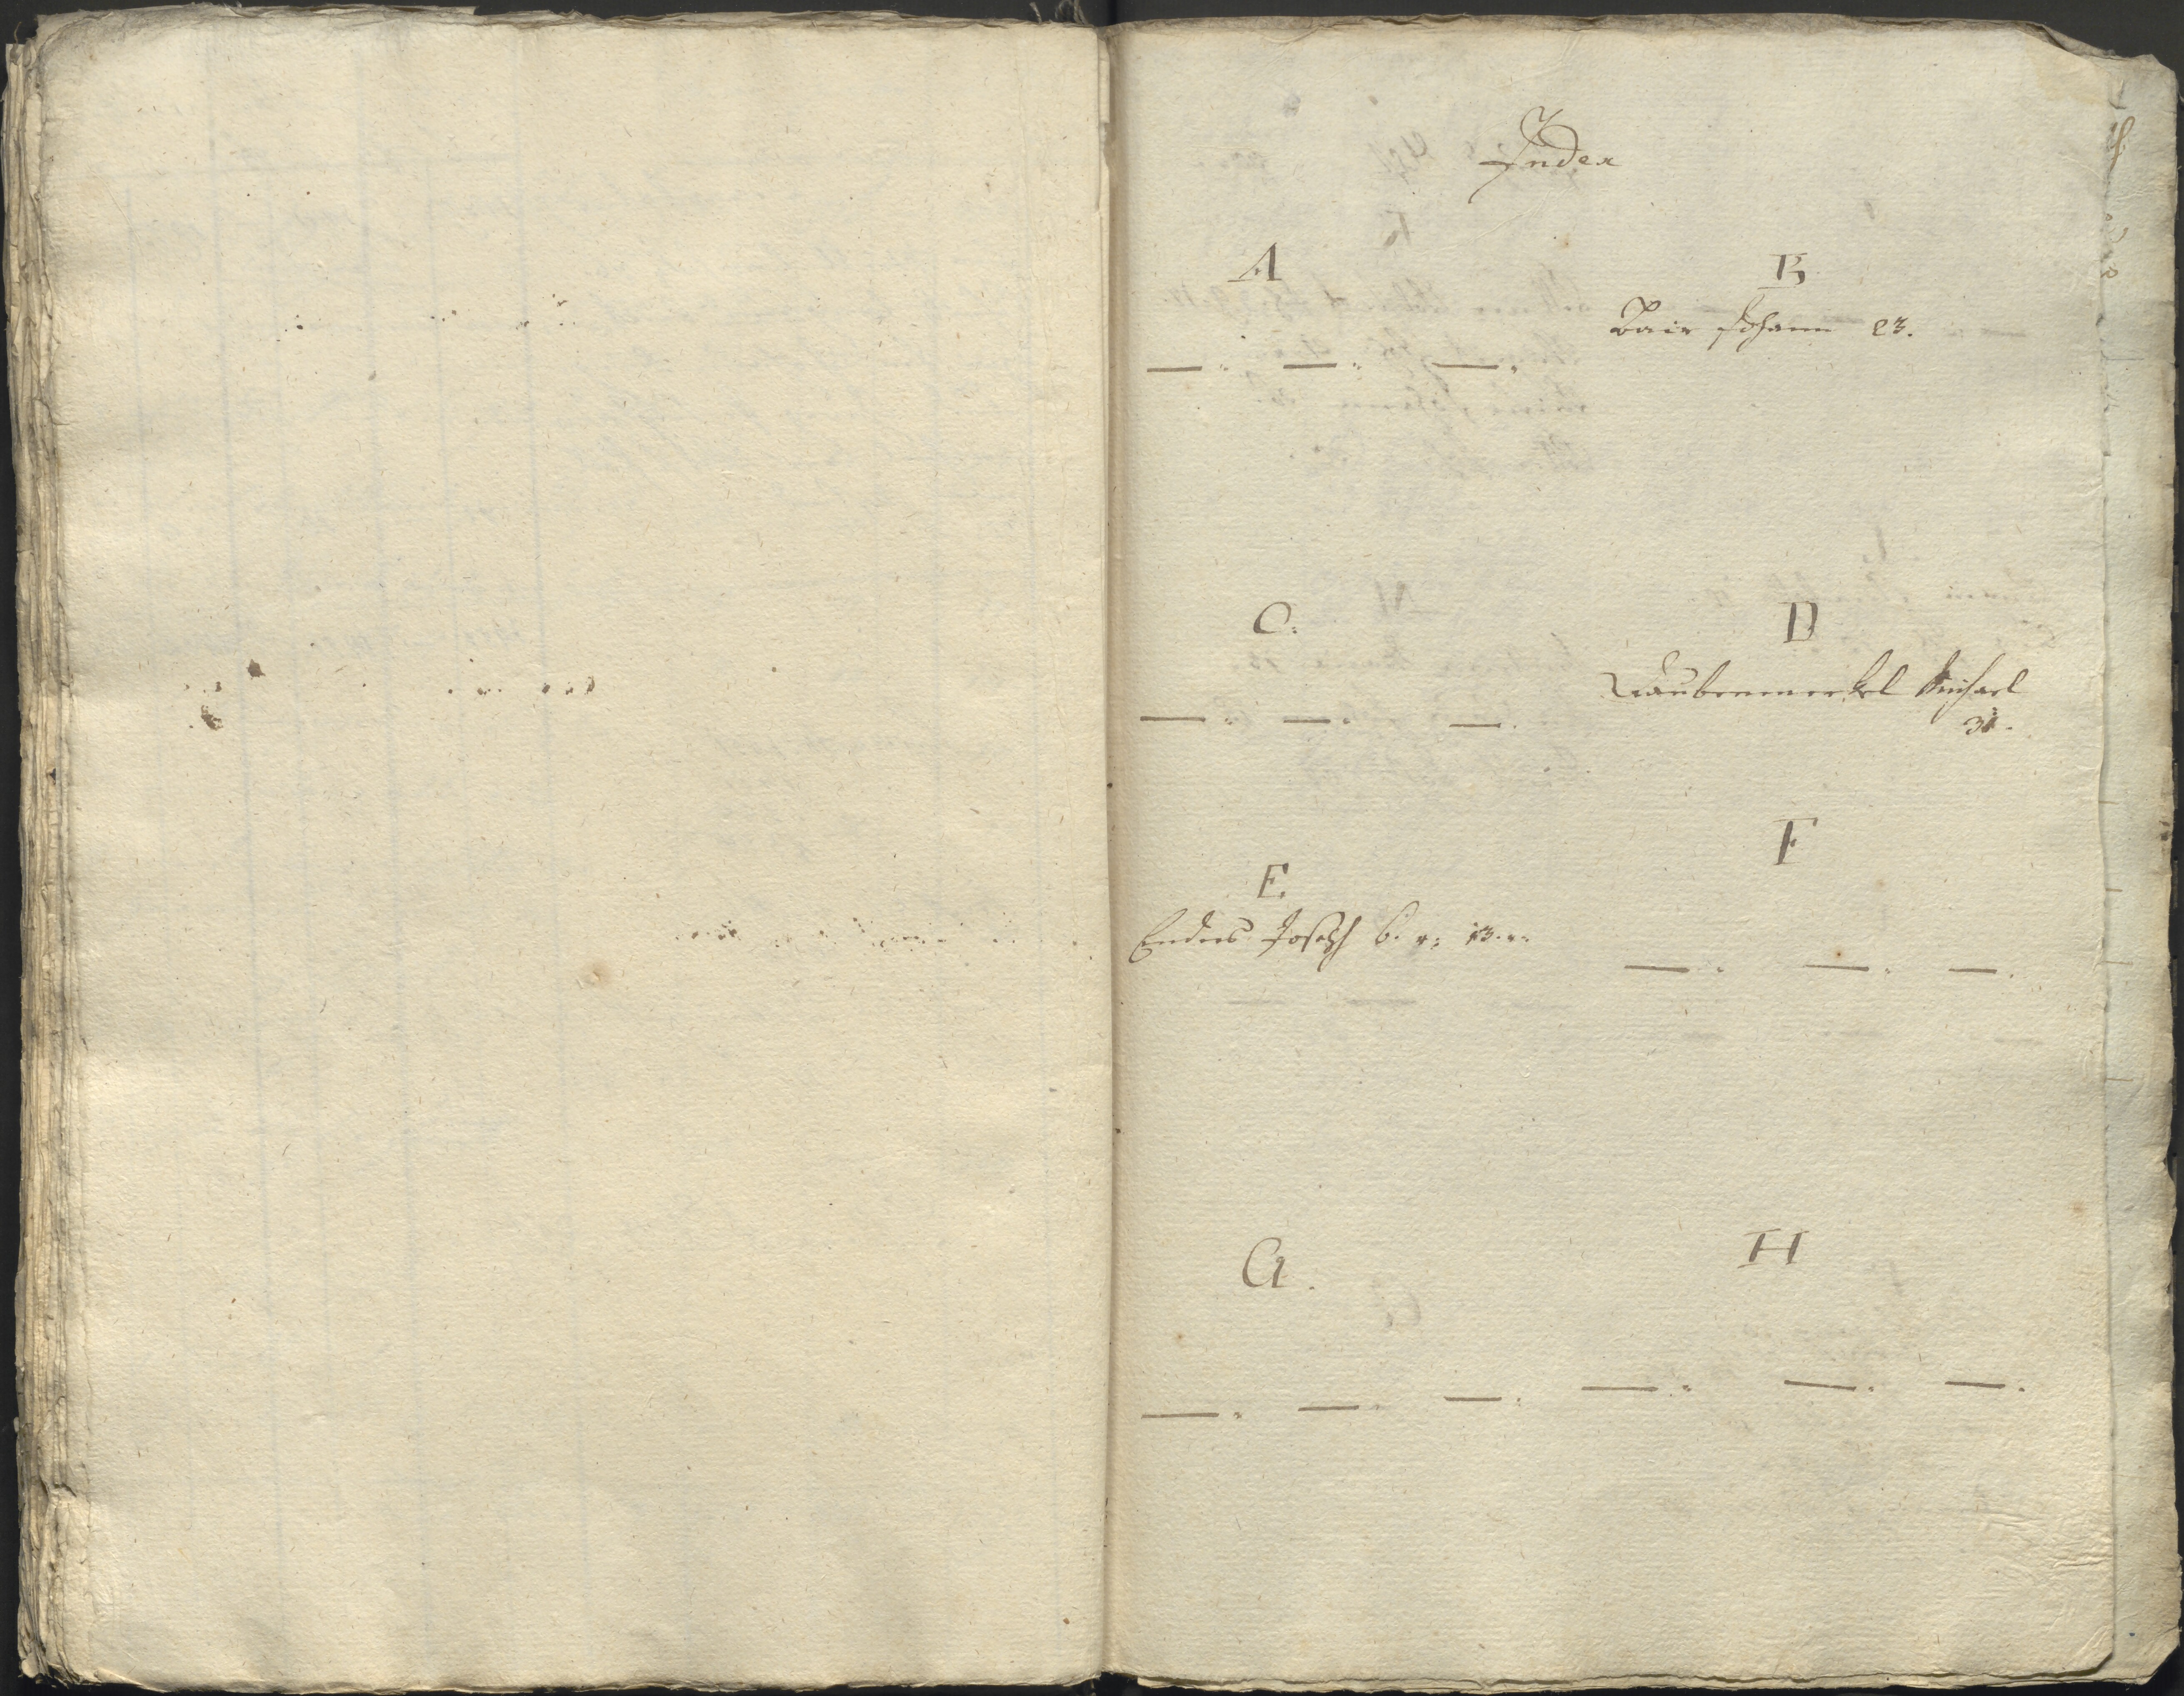 Index
A
B
Bair Johann 23.
— . — . — .
C.
D
Daubenmerkel Michael
31.
— . — . — .
F
E.
Enders Joseph 6. 13.
— . — . — .
G.
H
— . — . — .
— . — . — .